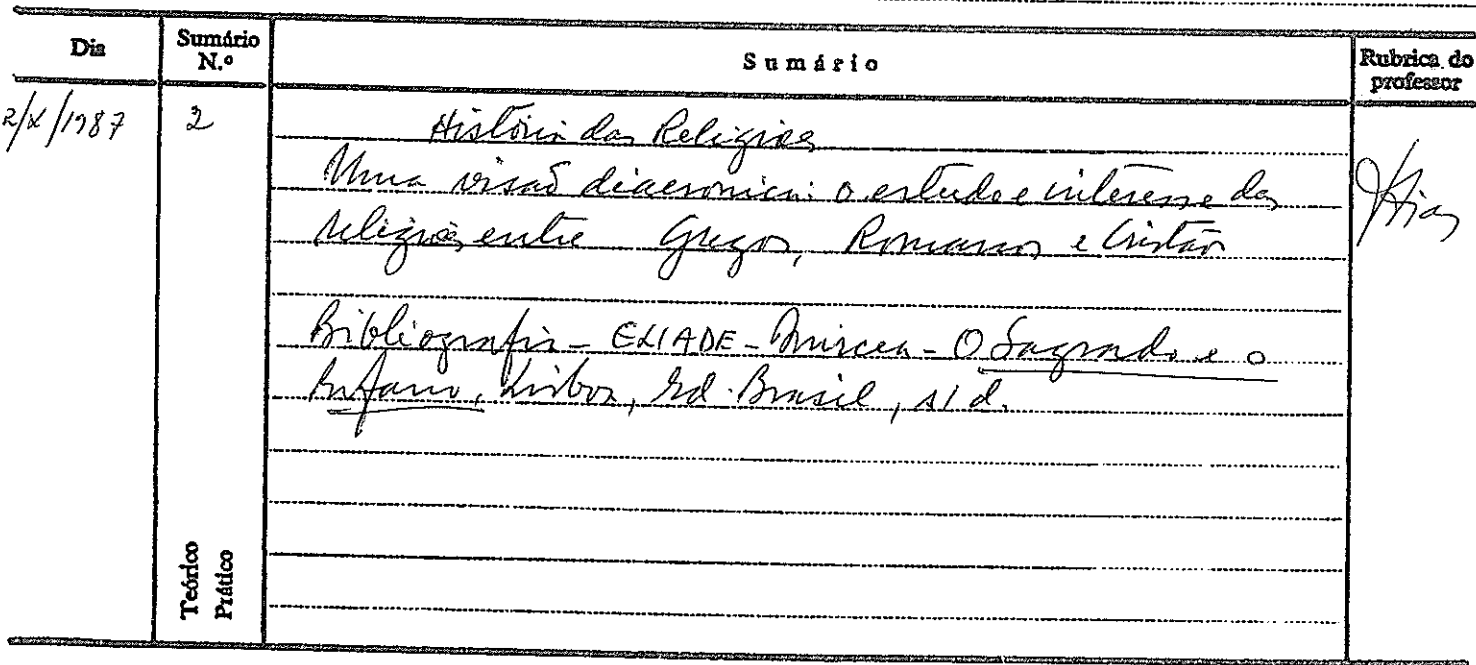 Dia
Sumário N.º
Sumário
Rubrica do professor
2/X/1987
2
História das Religiões
Uma visão diacronica: o estudo e interesse das
religiões entre Gregos, Romanos e Cristãos
Bibliografia - ELIADE - Mircea - O Sagrado e o
Profano, Lisboa, Ed. Brasil, s/d.
Teórico
Prático